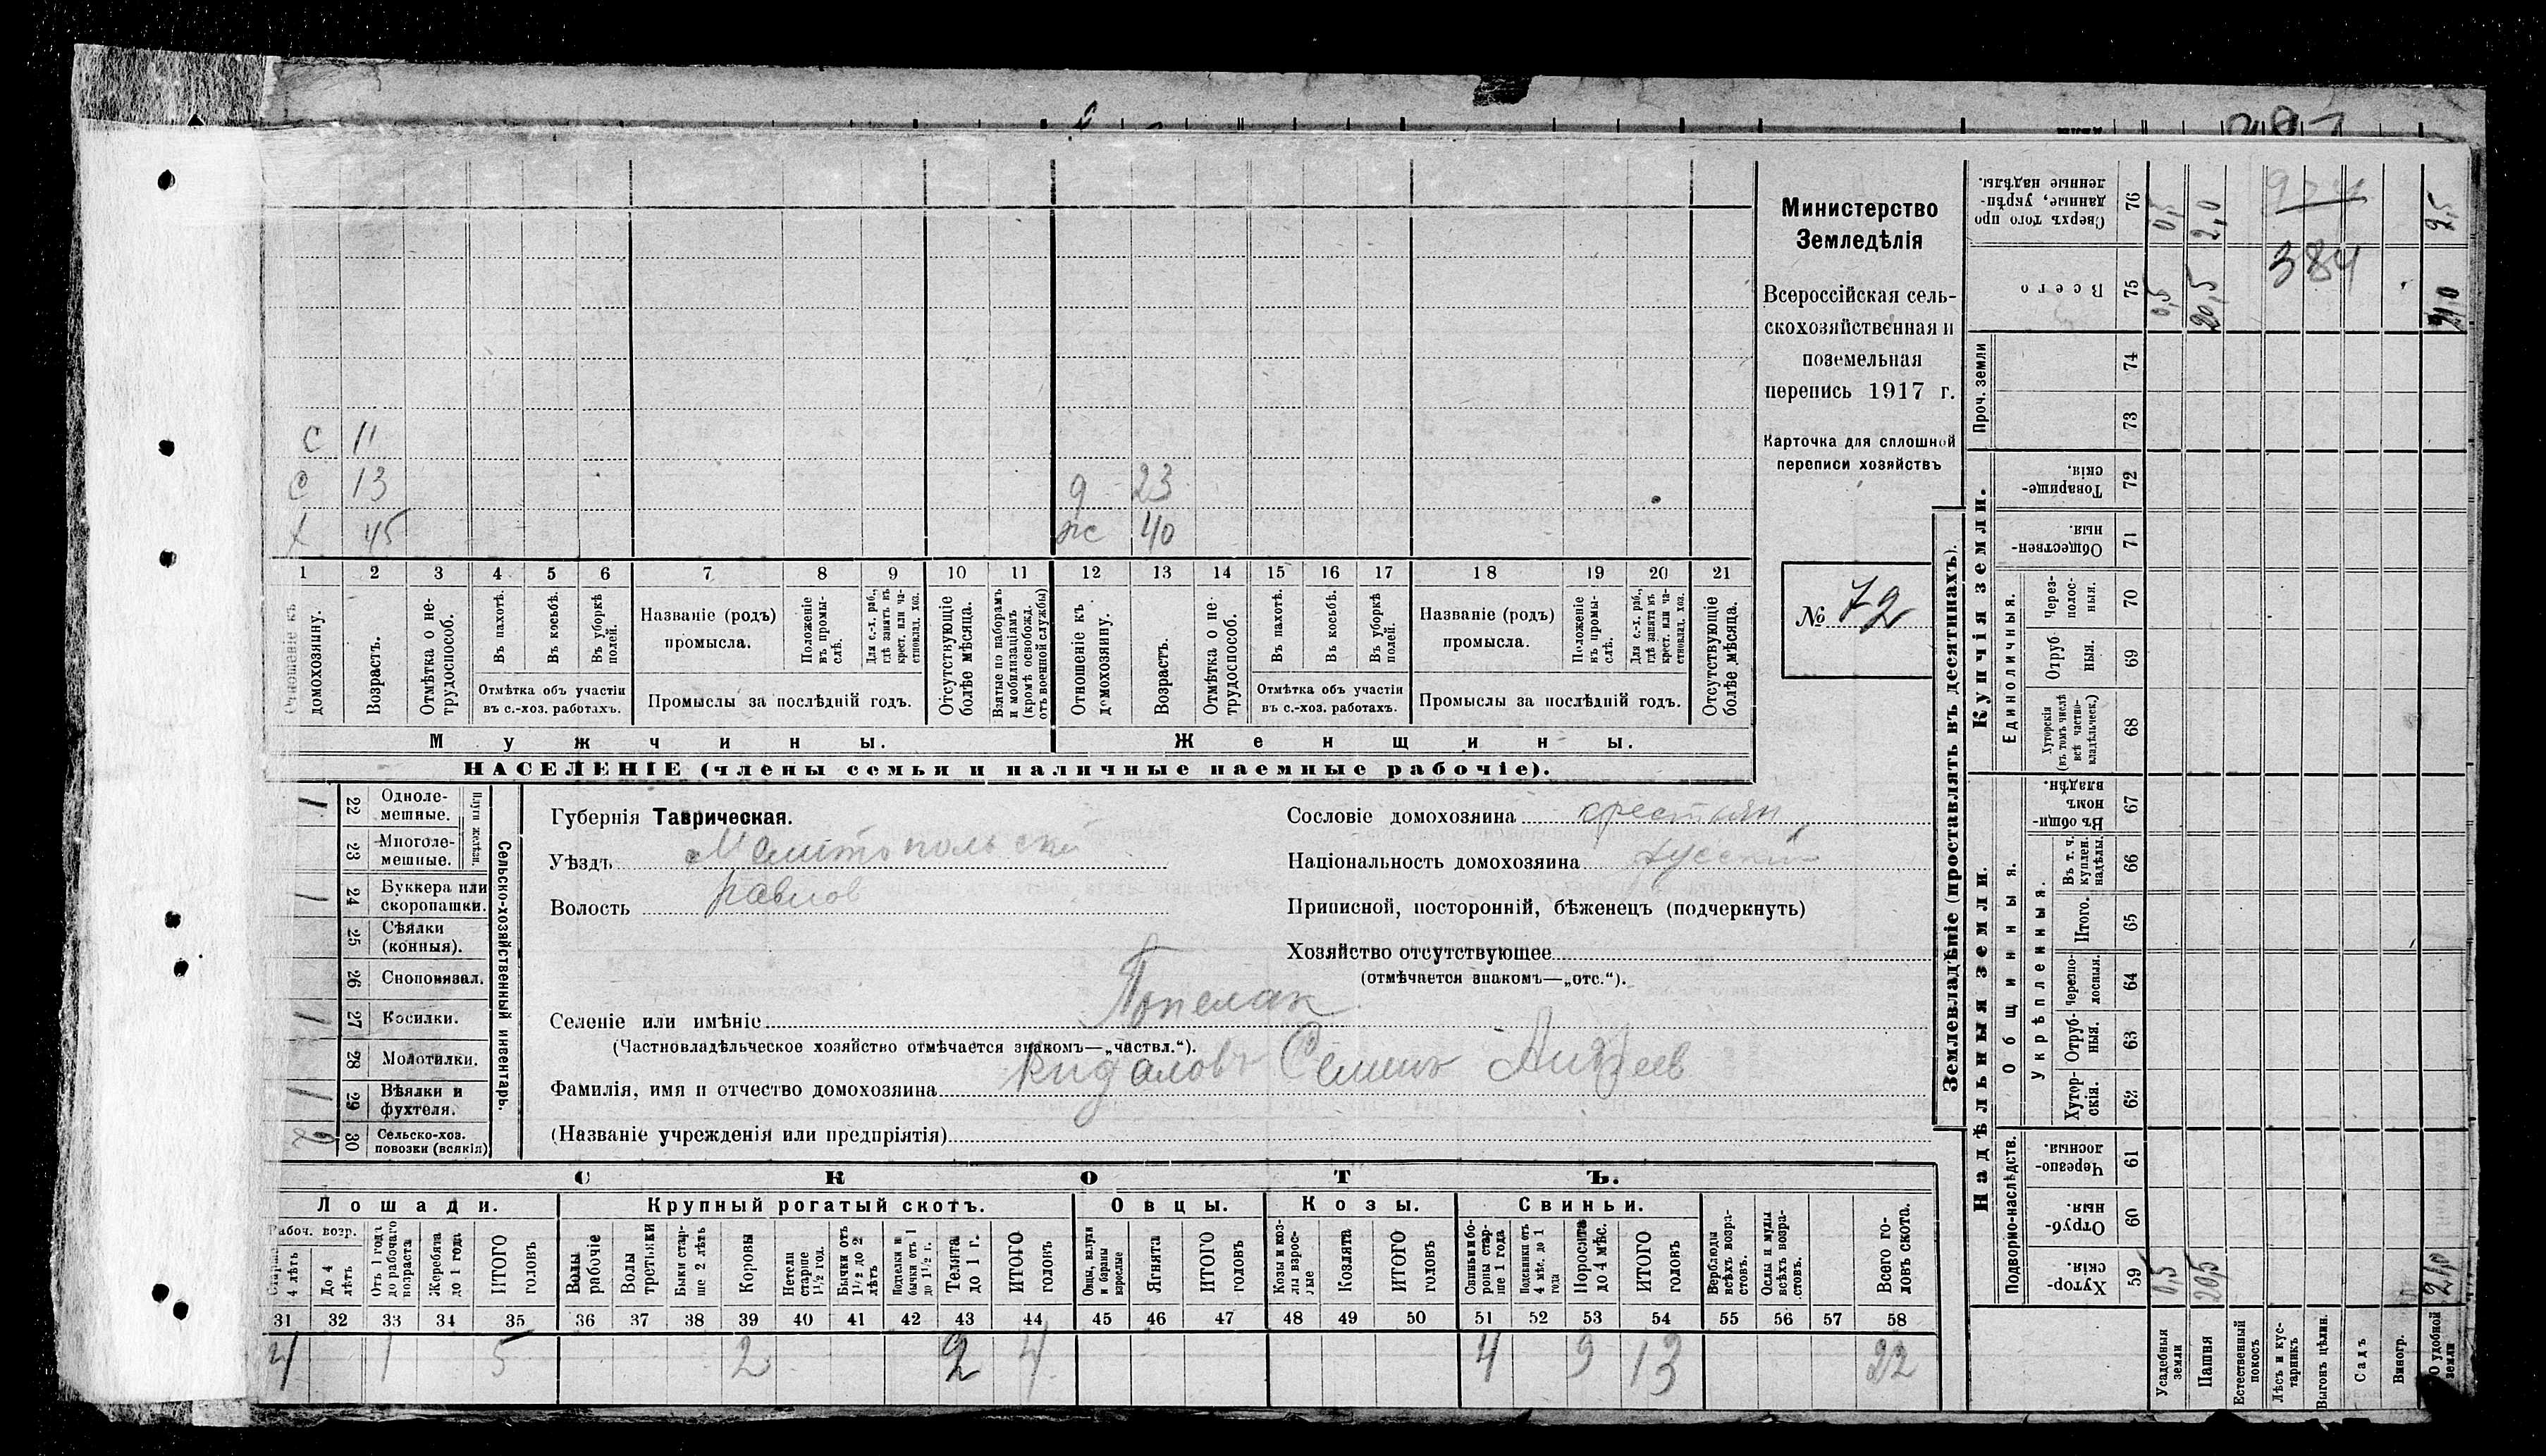 Министерство
Земледѣлія
Всероссійская сель-
скохозяйственная и
поземельная
перепись 1917 г.
Карточка для сплошной
переписи хозяйствъ
№ 72
с 11
с 13
х 45
д 23
ж 40
1 2 3 4 5 6 7 8 9 10 11 12 13 14 15 16 17 18 19 20 21
Отношеніе къ домохозяину.
Возрастъ.
Отмѣтка о не-трудоспособ.
Въ пахотѣ.
Въ косьбѣ.
Въ уборкѣ полей.
Отмѣтка объ участіи
въ с.-хоз. работахъ.
Названіе (родъ)
промысла.
Положеніе въ промы-слѣ.
Для с.-х. раб., гдѣ занятъ въ крест. или ча-стновлад. хоз.
Промыслы за послѣдній годъ.
Отсутствующіе болѣе мѣсяца.
Взятые по наборамъ и мобилизаціямъ (кромѣ освобожд. отъ военной службы)
Отношеніе къ домохозяину.
Возрастъ.
Отмѣтка о не-трудоспособ.
Въ пахотѣ.
Въ косьбѣ.
Въ уборкѣ полей.
Отмѣтка объ участіи
въ с.-хоз. работахъ.
Названіе (родъ)
промысла.
Положеніе въ промы-слѣ.
Для с.-х. раб., гдѣ занятъ въ крест. или ча-стновлад. хоз.
Промыслы за послѣдній годъ.
Отсутствующіе болѣе мѣсяца.
Мужчины.
Женщины.
НАСЕЛЕНІЕ (члены семьи и наличные наемные рабочіе).
1 22 Одноле-мешные.
23 Многоле-мешные.
Плуги желѣзн.
1 24 Буккера или скоропашки.
25 Сѣялки (конныя).
26 Сноповязал.
1 27 Косилки.
28 Молотилки.
1 29 Вѣялки и фухтеля.
30 Сельско-хоз. повозки (всякія)
Сельско-хозяйственный инвентарь.
Губернія Таврическая.
Уѣздъ Мелитопольскій
Волость
Сословіе домохозяина крестьян
Національность домохозяина русскій
Приписной, посторонній, бѣженецъ (подчеркнуть)
Хозяйство отсутствующее
(отмѣчается знакомъ—„отс.“).
Селеніе или имѣніе
(Частновладѣльческое хозяйство отмѣчается знакомъ—„частвл.“).
Фамилія, имя и отчество домохозяина Семенъ Андреев
(Названіе учрежденія или предпріятія)
СКОТЪ.
Лошади.
Крупный рогатый скотъ.
Овцы.
Козы.
Свиньи.
Рабоч. возр.
Старше 4 лѣтъ
До 4 лѣтъ
Отъ 1 года до рабочаго возраста
Жеребята до 1 года
ИТОГО головъ
Волы рабочіе
Волы третьяки
Быки стар-ше 2 лѣтъ
Коровы
Нетели старше 1½ год.
Бычки отъ 1½ до 2 лѣтъ
Подтелки и бычки отъ 1 до 1½ г.
Телята до 1 г.
ИТОГО головъ
Овцы, валухи и бараны взрослые
Ягнята
ИТОГО головъ
Козы и коз-лы взрос-лые
Козлята
ИТОГО головъ
Свиньи и бо-ровы стар-ше 1 года
Подсвинки отъ 4 мѣс. до 1 года
Поросята до 4 мѣс.
ИТОГО головъ
Верблюды всѣхъ возра-стовъ.
Ослы и мулы всѣхъ возра-стовъ.
Всего го-ловъ скота.
31 32 33 34 35 36 37 38 39 40 41 42 43 44 45 46 47 48 49 50 51 52 53 54 55 56 57 58
4 1 5 2 2 4 4 9 13 22
Землевладѣніе (проставлять въ десятинахъ).
Надѣльныя земли.
Купчія земли.
Проч. земли
Подворно-наслѣдств.
Общинныя.
Укрѣпленныя.
Единоличныя.
Сверхъ того про-данные, укрѣп-ленные надѣлы. 76 0,5 2,0 2,5
Всего 75 0,5 20,5 384 21,0
74
73
Товарище-скія. 72
Обществен-ныя. 71
Через-полос-ныя. 70
Отруб-ныя. 69
Хуторскія (въ томъ числѣ всѣ частно-владѣльческ.) 68
Въ общин-номъ владѣн. 67
Въ т. ч. куплен. надѣлы. 66
Итого. 65
Черезпо-лосныя. 64
Отруб-ныя. 63
Хутор-скія. 62
Черезпо-лосныя 61
Отруб-ныя 60
Хутор-скія. 59 0,5 20,5 21,0
Усадебныя земли
Пашня
Естественный покосъ
Лѣсъ и кус-тарникъ
Выгонъ цѣлин.
Садъ
Виногр.
удобной земли